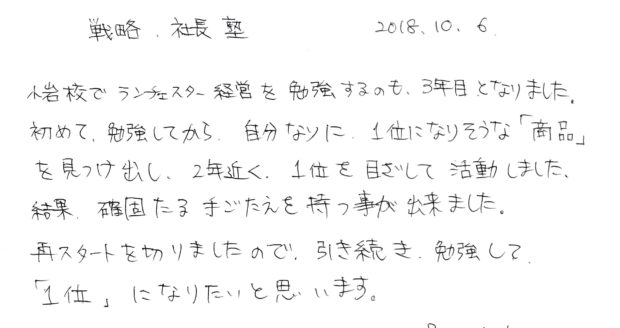 戦略、社長塾 2018.10.6
小岩校でランチェスター経営を勉強するのも、3年目となりました。
初めて、勉強してから、自分なりに、1位になりそうな「商品」
を見つけ出し、2年近く、1位を目ざして活動しました、
結果、確固たる手ごたえを持つ事が出来ました。
再スタートを切りましたので、引き続き、勉強して、
「1位」になりたいと思います。